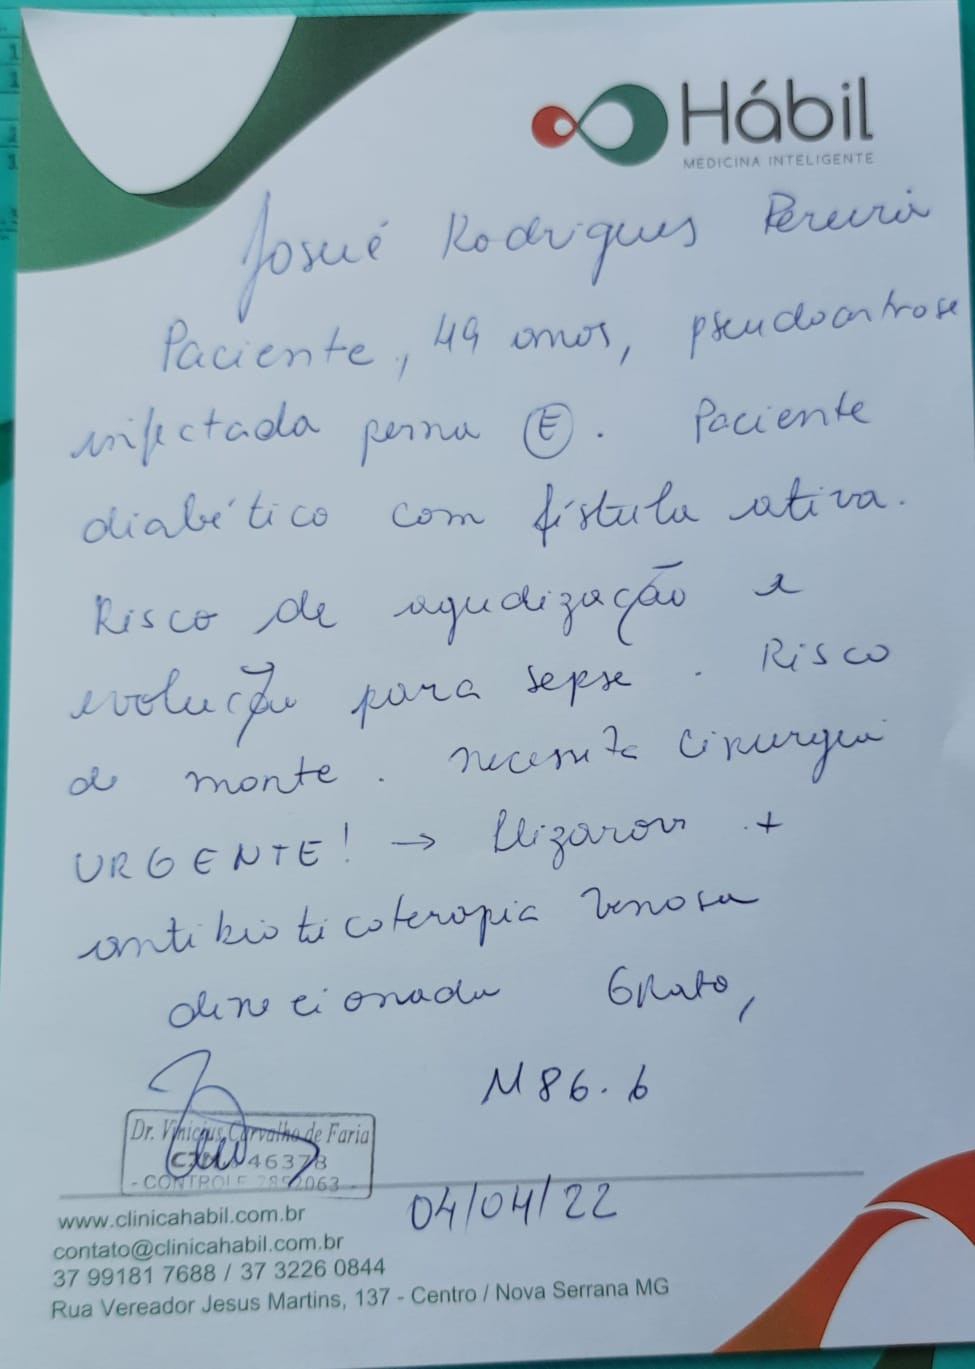 Hábil
MEDICINA INTELIGENTE
Josué Rodrigues Pereira
Paciente, 49 anos, pseudoartrose
infectada perna (E). Paciente
diabético com fístula ativa.
Risco de agudização e
evolução para sepse. Risco
de morte. Necessita cirurgia
URGENTE! → Ilizarov +
antibioticoterapia venosa
direcionada Grato,
M86.6
Dr. Vinicius Carvalho de Faria
46378
- CONTROLE 2892063 -
04/04/22
www.clinicahabil.com.br
contato@clinicahabil.com.br
37 99181 7688 / 37 3226 0844
Rua Vereador Jesus Martins, 137 - Centro / Nova Serrana MG